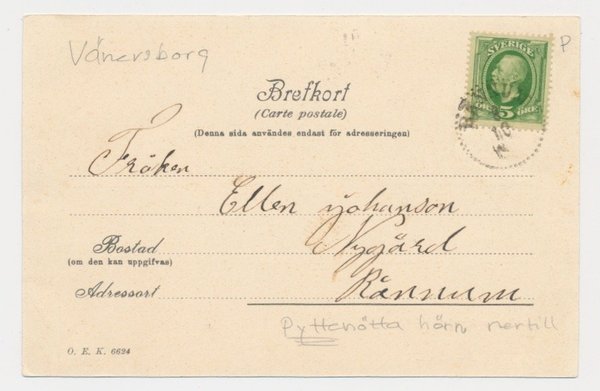 Vänersborg
P
SVERIGE
5 ÖRE
Brefkort
(Carte postale)
(Denna sida användes endast för adresseringen)
Fröken
Ellen Johanson
Nygård
Bostad
(om den kan uppgifvas)
Rånnum
Adressort
hörn nertill
O. E. K. 6624